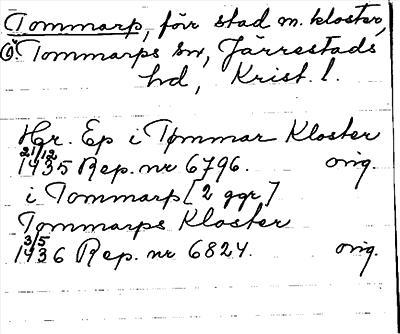 Tommarp, förr stad m. kloster,
Ö. Tommarps sn, Järrestads
hd, Krist. l.
Hr. Ep i Tommar Kloster
21/12
1435 Rep. nr 6796. orig.
i Tommarp [2 ggr]
Tommarps Kloster
3/5
1436 Rep. nr 6824. orig.